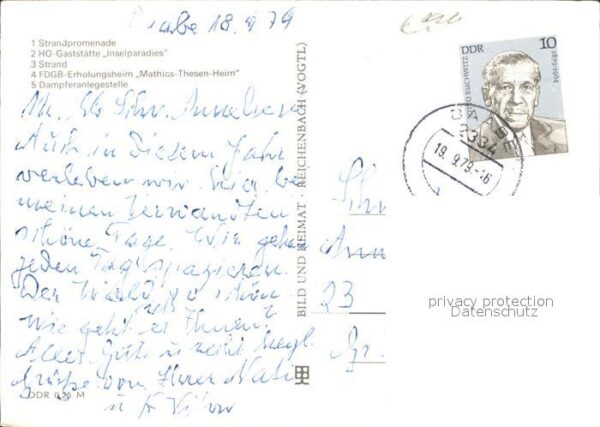 Baabe 18.9.79
1 Strandpromenade
2 HO-Gaststätte „Inselparadies"
3 Strand
4 FDGB-Erholungsheim „Mathias-Thesen-Heim"
5 Dampferanlegestelle
Auch in diesem Jahr
verleben wir hier bei
meinen Verwandten
schöne Tage. Wir gehen
jeden Tag spazieren.
Der Wald so schön
Wie geht es Ihnen?
Alles Gute u recht herzl.
Grüße von Ihrer
u
DDR 0,25 M
BILD UND HEIMAT REICHENBACH (VOGTL)
DDR 10
OTTO BUCHWITZ 1879-1964
2334
19.9.79
Schw
23
privacy protection
Datenschutz